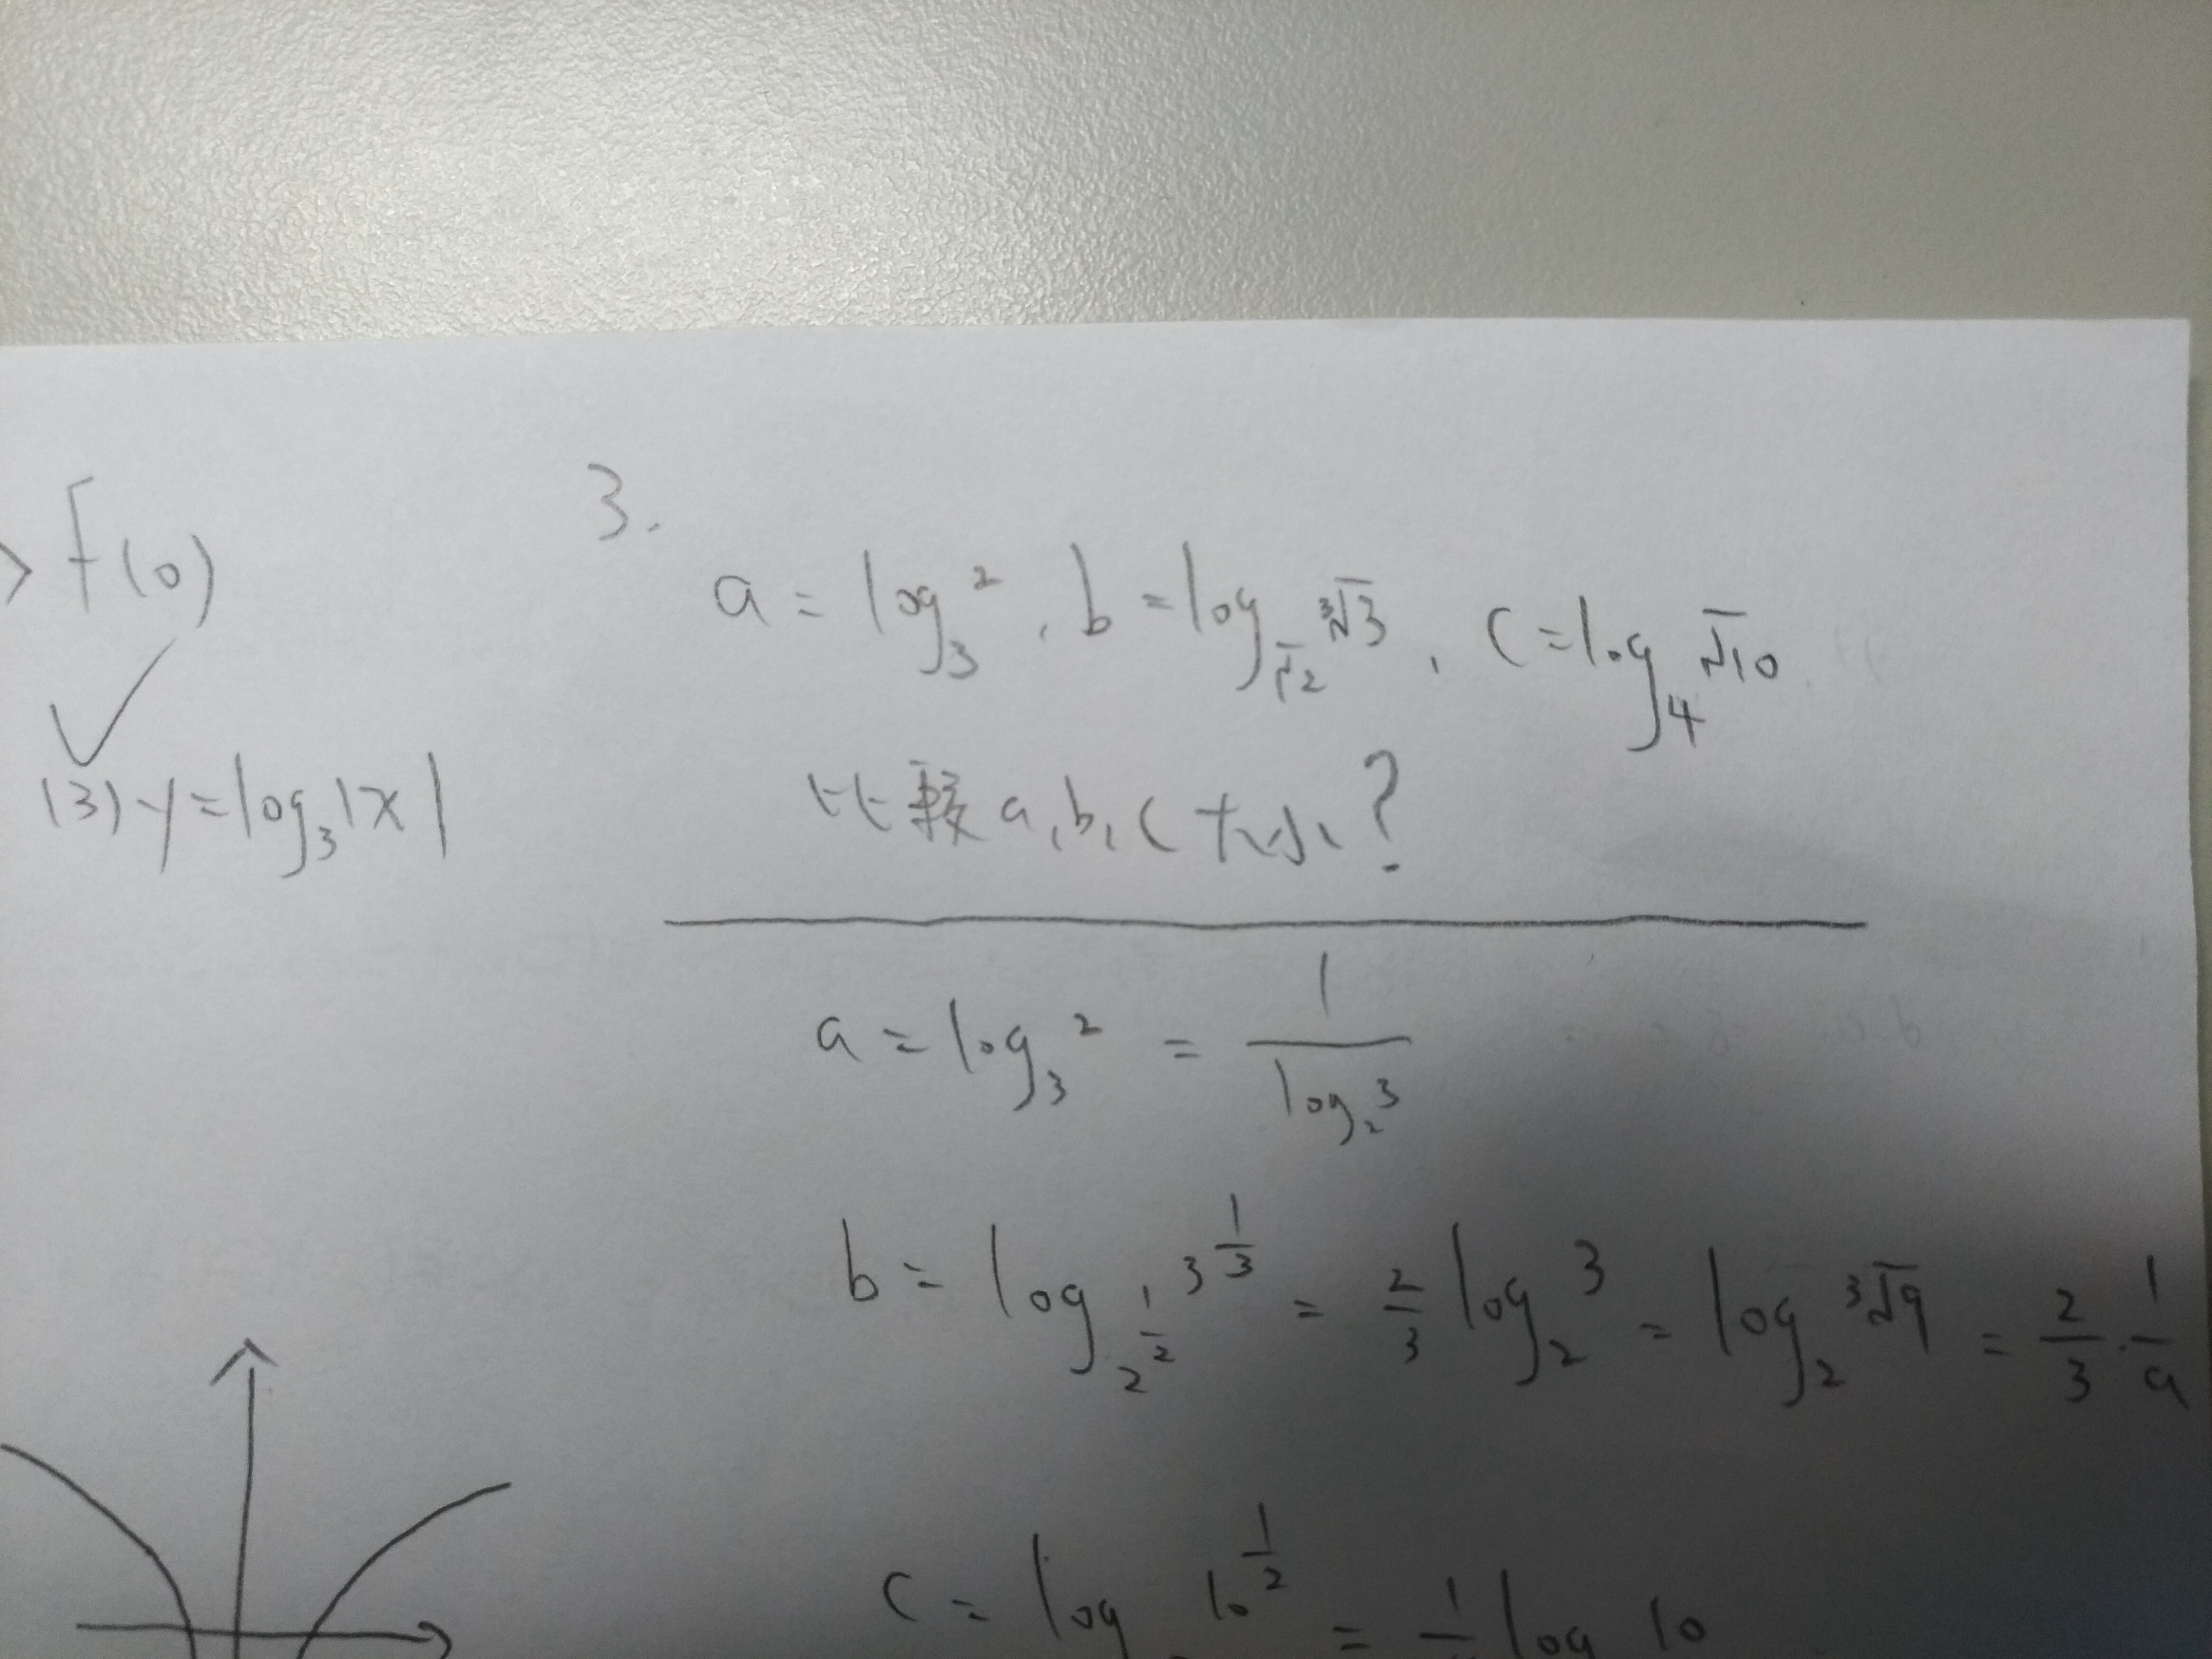 > f(0)
(3) y = log₃|x|
3.
a = log₃², b = log_√2 ³√3, c = log₄√10
比較 a, b, c 大小?
a = log₃² = 1/log₂³
b = log_2^(1/2) 3^(1/3) = 2/3 log₂³ = log₂ ³√9 = 2/3 · 1/a
c = log 10^(1/2) = log 10